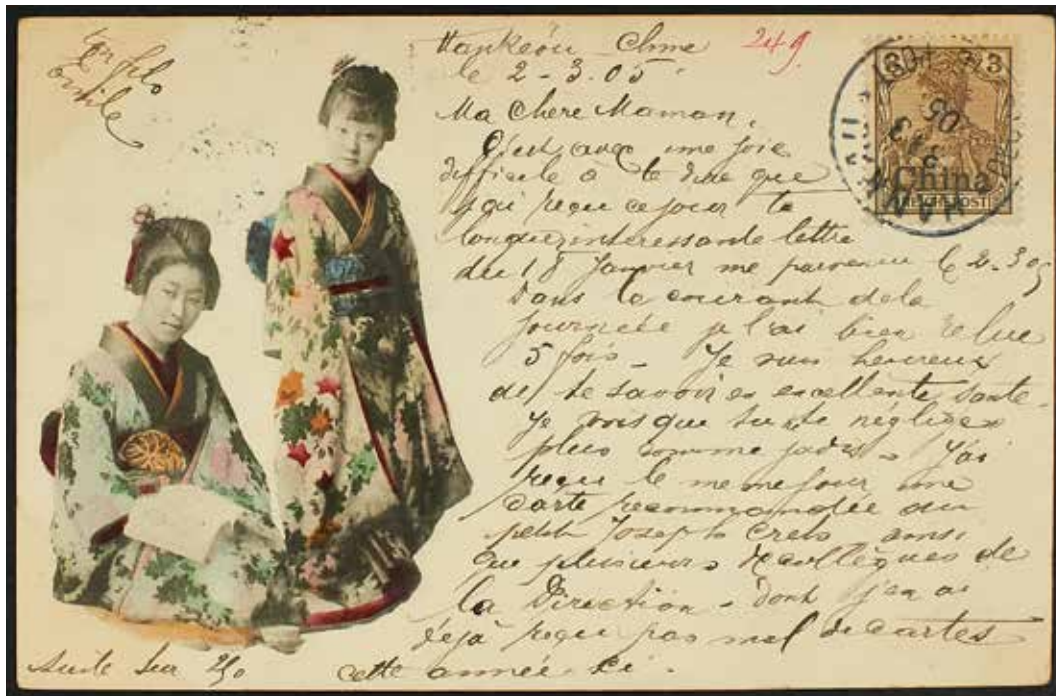 Ton fils
Emile
Hankéou Chine 249
le 2-3.05.
Ma Chere Maman,
C'est avec une joie
difficile à te dire que
j'ai reçu ce jour ta
longue, interessante lettre
du 18 Janvier me parvenu le 2-3 05
Dans le courant de la
journée je l'ai bien relue
5 fois - Je suis heureux
de te savoir en excellente santé.
Je vois que tu te négliges
plus comme jadis - J'ai
reçu le meme jour une
carte recommandée du
petit Joseph ainsi
que plusieurs de
la Direction - dont j'en ai
déjà reçu pas mal de cartes
cette année ci.
Suite sur 250
3 3
China
REICHSPOST
HANKAU